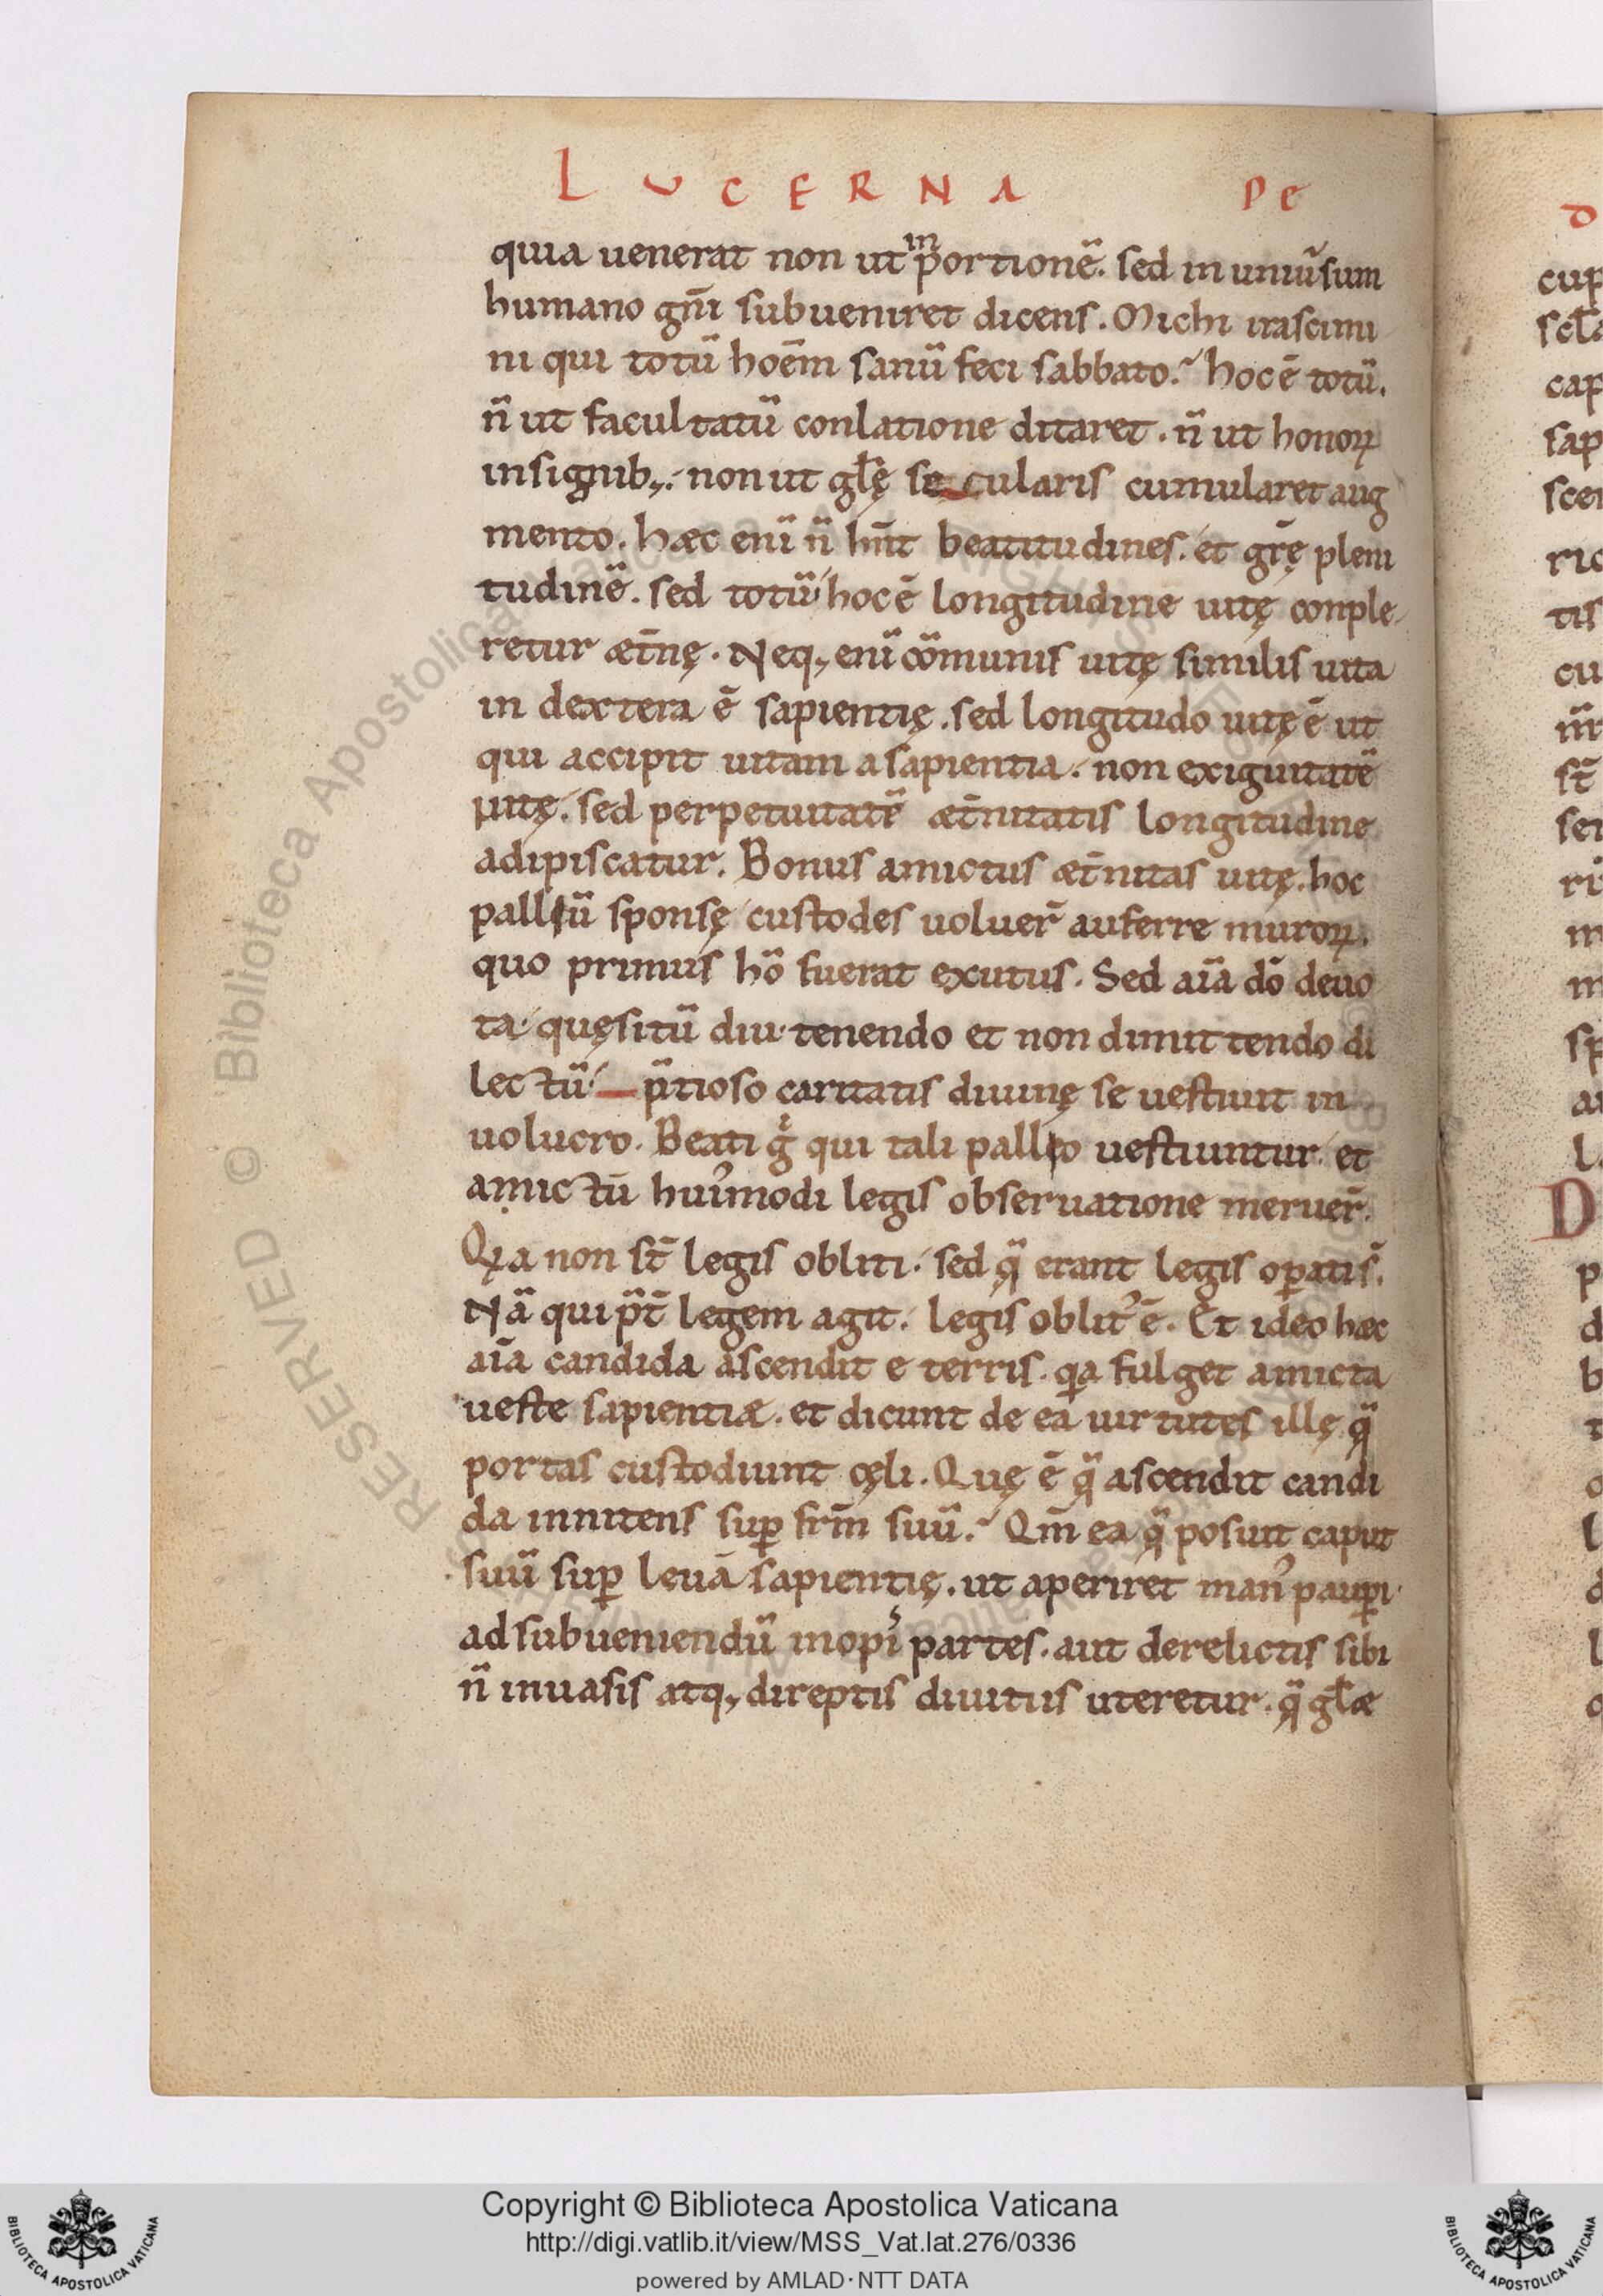 LUCERNA PE
quia uenerat non ut in portionē. sed in uniūsum
humano gn̄i subueniret dicens. Michi irascimi
ni qui totū hoēm sanū feci sabbato? hoc ē totū.
n̄ ut facultatū conlatione ditaret. n̄ ut honoꝝ
insignib;. non ut gl̄ę secularis cumularet aug
mento. hæc eni̅ n̄ hn̄t beatitudines. et gr̄ę pleni
tudinē. sed totū hoc ē longitudine uitę conple
retur æt̄nę. Neq; enī cōmunis uitę similis uita
in dextera ē sapientię. sed longitudo uitę ē ut
qui accipit uitam a sapientia. non exiguitatē
uitę. sed perpetuitatē æt̄nitatis longitudine
adipiscatur. Bonus amictus æt̄nitas uitę. hoc
palliū sponsę custodes uoluer̄ auferre muroꝝ.
quo primus hō fuerat exutus. Sed aīa dō deuo
ta. quęsitū diu. tenendo et non dimittendo di
lectū p̄tioso caritatis diuinę se uestiuit in
uolucro. Beati gͦ qui tali pallio uestiuntur. et
amictū huiꝰmodi legis obseruatione meruer̄.
Qꝛa non st̄ legis obliti. sed q̄ erant legis oꝑatis̄.
Nā qui p̄t̄ legem agit. legis oblitꝰ ē. Et ideo hæc
aīa candida ascendit e terris. qꝛa fulget amicta
ueste sapientiæ. et dicunt de ea uirtutes illę q̄
portas custodiunt cęli. Quę ē q̄ ascendit candi
da innitens suꝑ fr̄m suū? Qm̄ ea q̄ posuit caput
suū suꝑ leuā sapientię. ut aperiret manꝰ pauꝑi
ad subueniendū inopi partes. aut derelictis sibi
n̄ inuasis atq; direptis diuitiis uteretur. q̄ gl̄æ
Copyright © Biblioteca Apostolica Vaticana
http://digi.vatlib.it/view/MSS_Vat.lat.276/0336
powered by AMLAD·NTT DATA
BIBLIOTECA APOSTOLICA VATICANA
BIBLIOTECA APOSTOLICA VATICANA